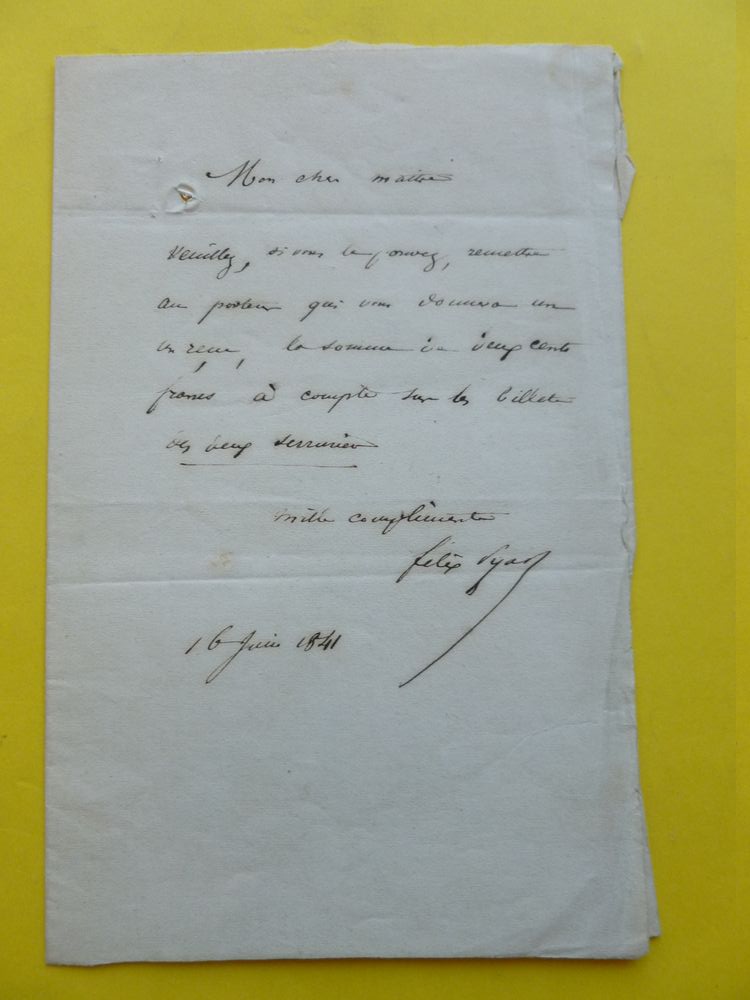 Mon cher maitre
Veuillez, si vous le pouvez, remettre
au porteur qui vous donnera un
un reçu, la somme de deux cents
francs à compte sur les billets
des deux serruriers
mille compliments
félix Pyat
16 Juin 1841